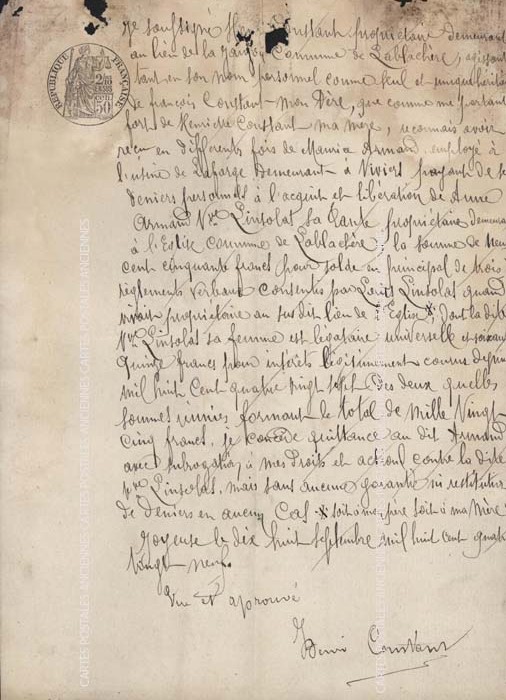 Je soussigné Henri Constant propriétaire demeurant
au lieu de la commune de Lablachère, agissant
tant en son nom personnel comme seul et unique héritier
de françois Constant mon Père, que comme me portant
fort de Constant ma mère, reconnais avoir
reçu en différents fois de Maurice Armand, employé à
l'usine de Lafarge demeurant à Viviers payant de ses
deniers personnels à l'acquit et libération de Anne
Armand Vve Linsolat sa tante propriétaire demeurant
à l'Eglise commune de Lablachère la somme de Neuf
cent cinquante francs pour solde en principal de trois
règlements verbaux consentis par Linsolat quand
vivant propriétaire au susdit lieu de l'Eglise, dont la dite
Vve Linsolat sa femme est légataire universelle et soixante
quinze francs pour intérêts légitimement courus depuis
mil huit cent quatre vingt sept des deux quelles
sommes réunies formant le total de Mille Vingt
cinq francs. Je concède quittance au dit Armand
avec subrogation à mes Droits et actions contre la dite
Vve Linsolat, mais sans aucune garantie ni restitution
de deniers en aucun Cas soit à mon père soit à ma Mère
Joyeuse le dix huit septembre mil huit cent quatre
vingt neuf.
Vu et aprouvé
Henri Constant
REPUBLIQUE FRANÇAISE
CARTES POSTALES ANCIENNES